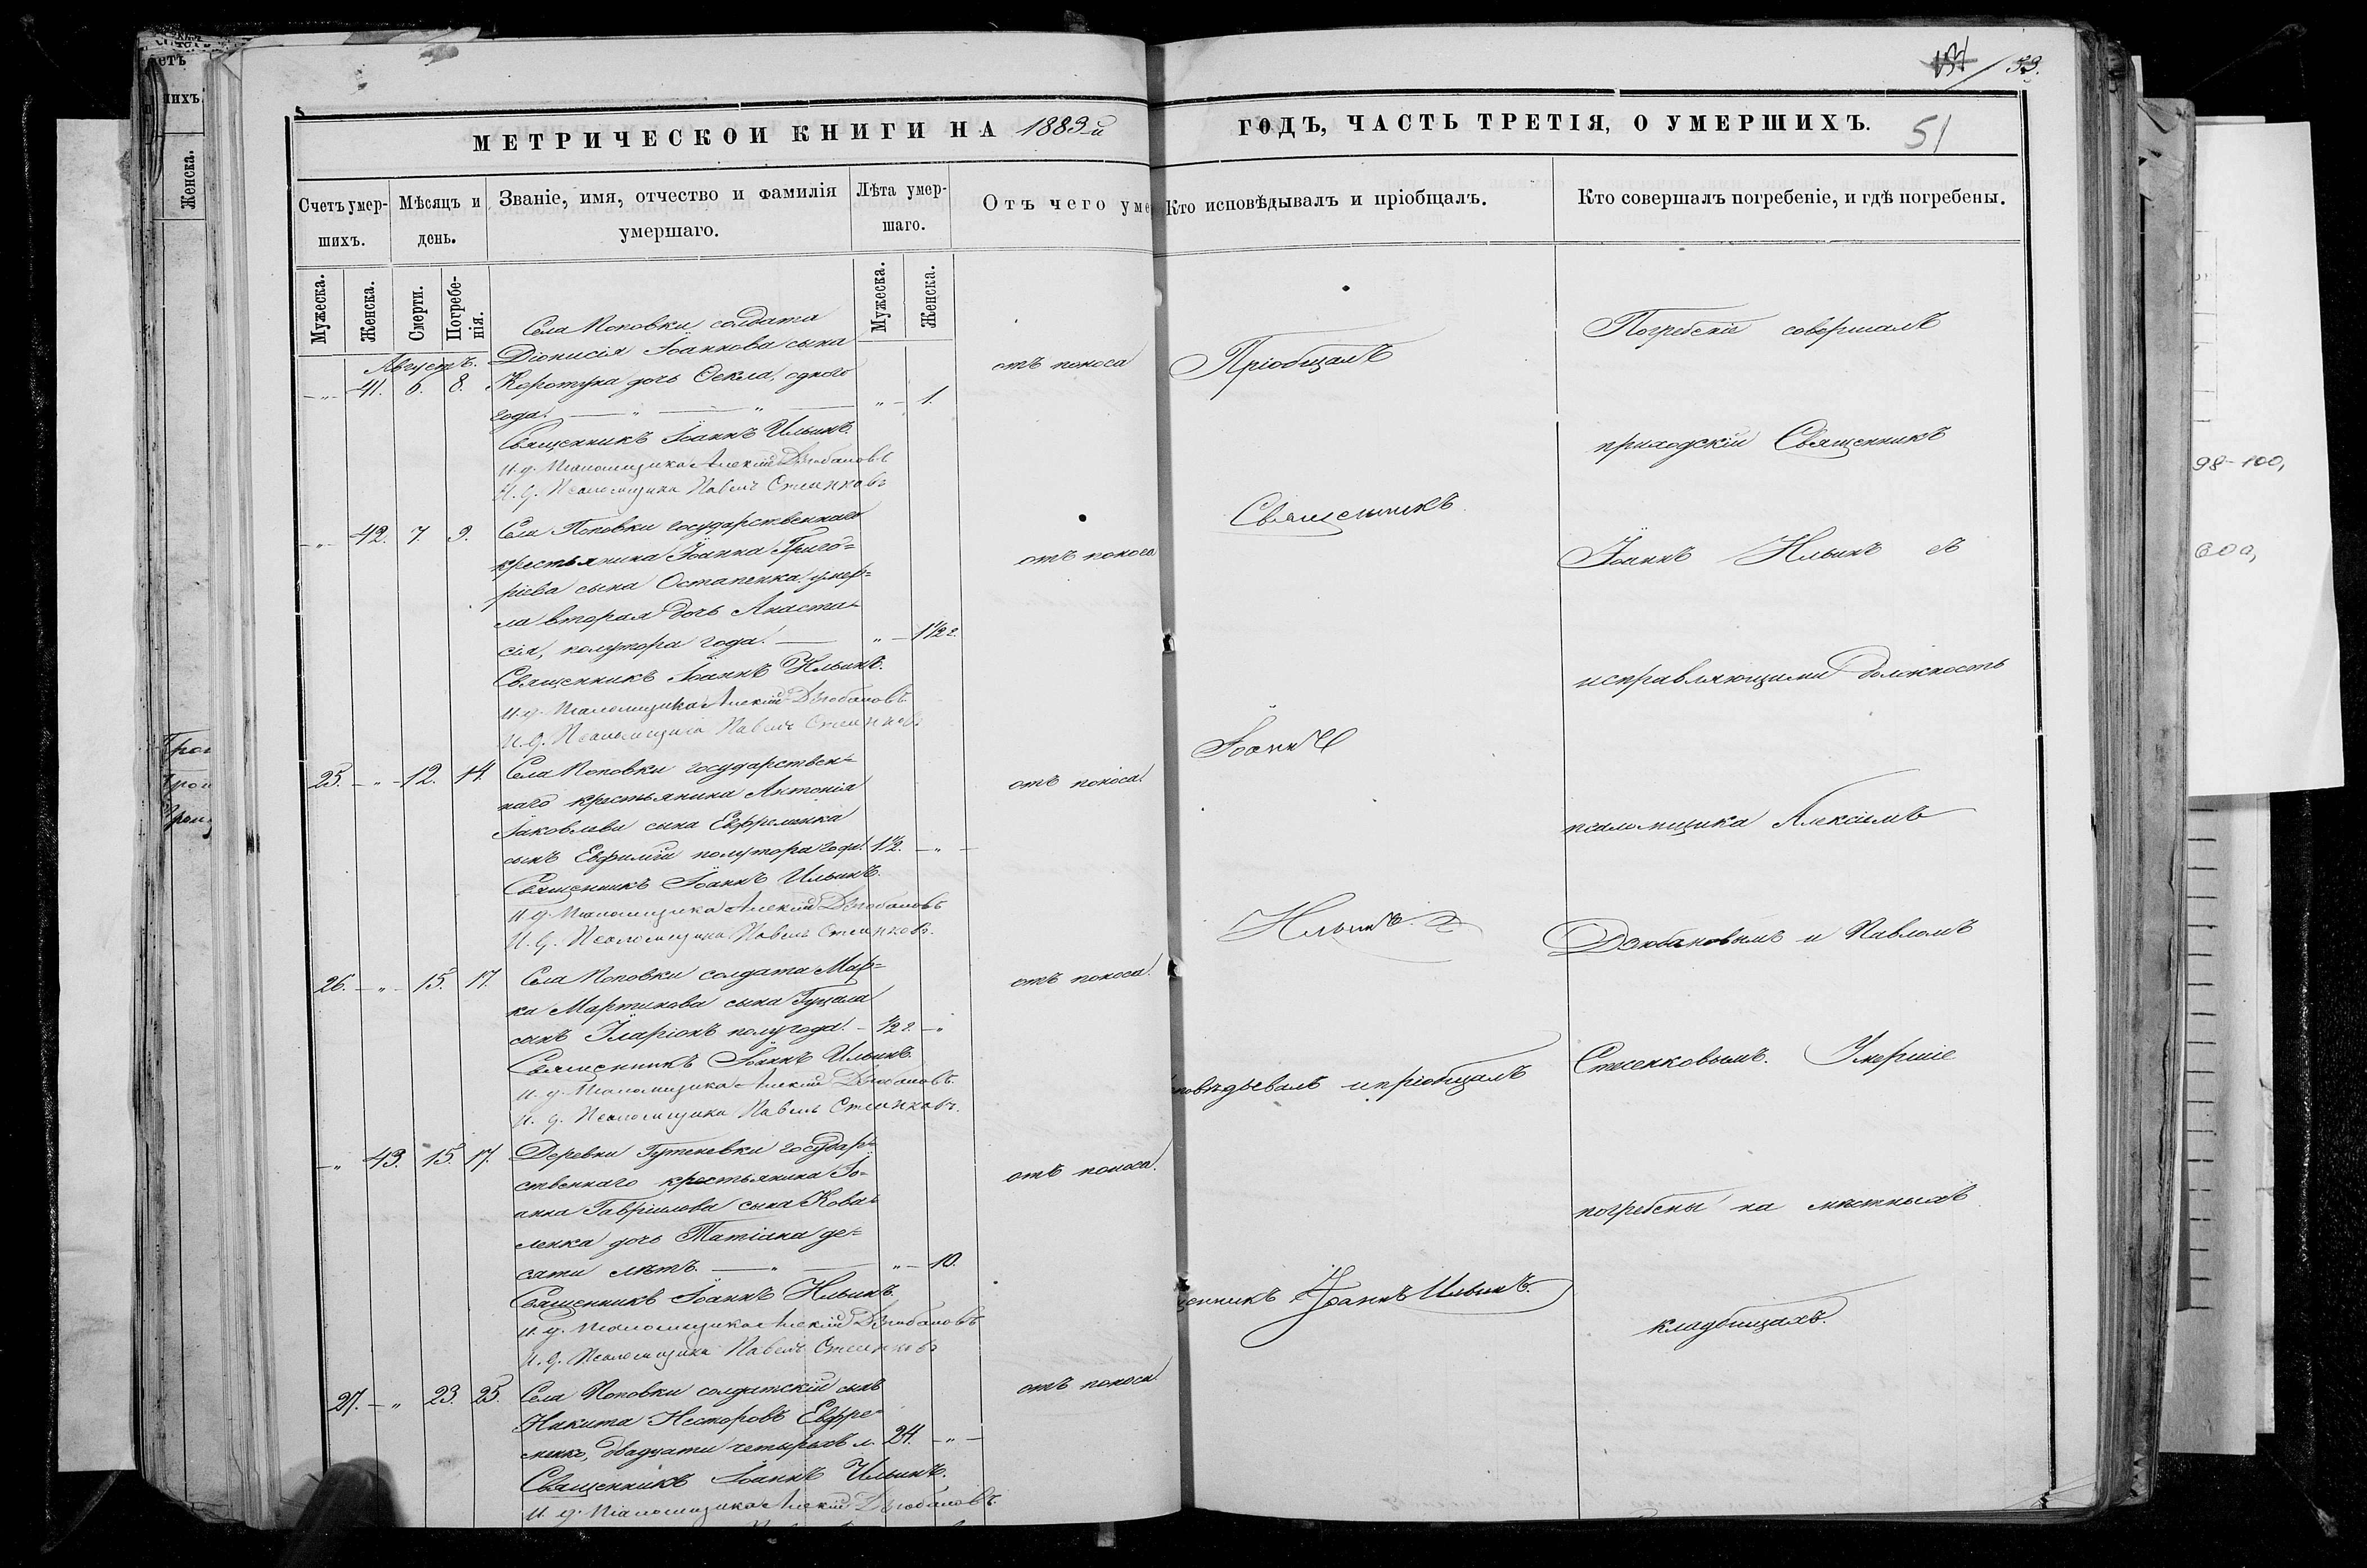 53.
МЕТРИЧЕСКОЙ КНИГИ НА 1883й
ГОДЪ, ЧАСТЬ ТРЕТІЯ, О УМЕРШИХЪ.
51
Счетъ умер-
шихъ.
Мѣсяцъ и
день.
Званіе, имя, отчество и фамилія
умершаго.
Лѣта умер-
шаго.
Отъ чего уме
Кто исповѣдывалъ и пріобщалъ.
Кто совершалъ погребеніе, и гдѣ погребены.
Мужеска.
Женска.
Смерти.
Погребе-
нія.
Мужеска.
Женска.
Августъ.
Села Поповки солдата
Діонисія Іоаннова сына
41. 6. 8. Коротуна дочь Ѳекла, одного
года. 1.
отъ поноса
Священникъ Іоаннъ Ильинъ.
И. д. Псаломщика Алексій Дзюбановъ
И. д. Псаломщика Павелъ Стенковъ
42. 7. 9. Села Поповки государственнаго
крестьянина Іоанна Григо=
ріева сына Остапенка умер=
ла вторая дочь Анаста=
сія, полутора года. 1 1/2 г.
отъ поноса
Священникъ Іоаннъ Ильинъ.
И. д. Псаломщика Алексій Дзюбановъ
И. д. Псаломщика Павелъ Стенковъ
25. 12. 14. Села Поповки государствен=
наго крестьянина Антонія
Іаковлева сына Евфременка
сынъ Евфимій полутора года. 1 1/2.
отъ поноса.
Священникъ Іоаннъ Ильинъ.
И. д. Псаломщика Алексій Дзюбановъ
И. д. Псаломщика Павелъ Стенковъ.
26. 15. 17. Села Поповки солдата Мар=
ка Мартинова сына Гуцала
сынъ Иларіонъ полугода. 1/2 г.
отъ поноса.
Священникъ Іоаннъ Ильинъ.
И. д. Псаломщика Алексій Дзюбановъ.
И. д. Псаломщика Павелъ Стенковъ.
43. 15. 17. Деревни Гутеневки государ=
ственнаго крестьянина Іо-
анна Гавріилова сына Кова=
ленка дочь Татіана де=
сяти лѣтъ. 10.
отъ поноса.
Священникъ Іоаннъ Ильинъ.
И. д. Псаломщика Алексій Дзюбановъ
И. д. Псаломщика Павелъ Стенковъ
27. 23. 25. Села Поповки солдатскій сынъ
Никита Несторовъ Евфре=
менко, двадцати четырехъ л. 24.
отъ поноса.
Священникъ Іоаннъ Ильинъ.
И. д. Псаломщика Алексій Дзюбановъ.
Пріобщалъ
Священникъ
Іоаннъ
Ильинъ.
повѣдывалъ и пріобщалъ
щенникъ Іоаннъ Ильинъ.
Погребеніе совершалъ
приходскій Священникъ
Іоаннъ Ильинъ съ
исправляющими должность
псаломщика Алексіемъ
Дзюбановымъ и Павломъ
Стенковымъ. Умершіе
погребены на мѣстныхъ
кладбищахъ.
98-100,
етъ
ихъ
Женска.